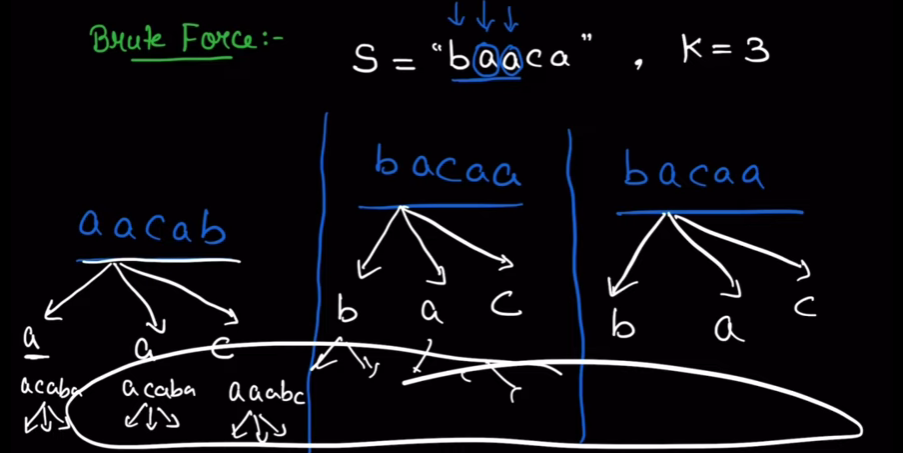 Brute Force:-
S = "baaca" , K = 3
aacab
bacaa
bacaa
a a c
b a c
b a c
acaba acaba aaabc